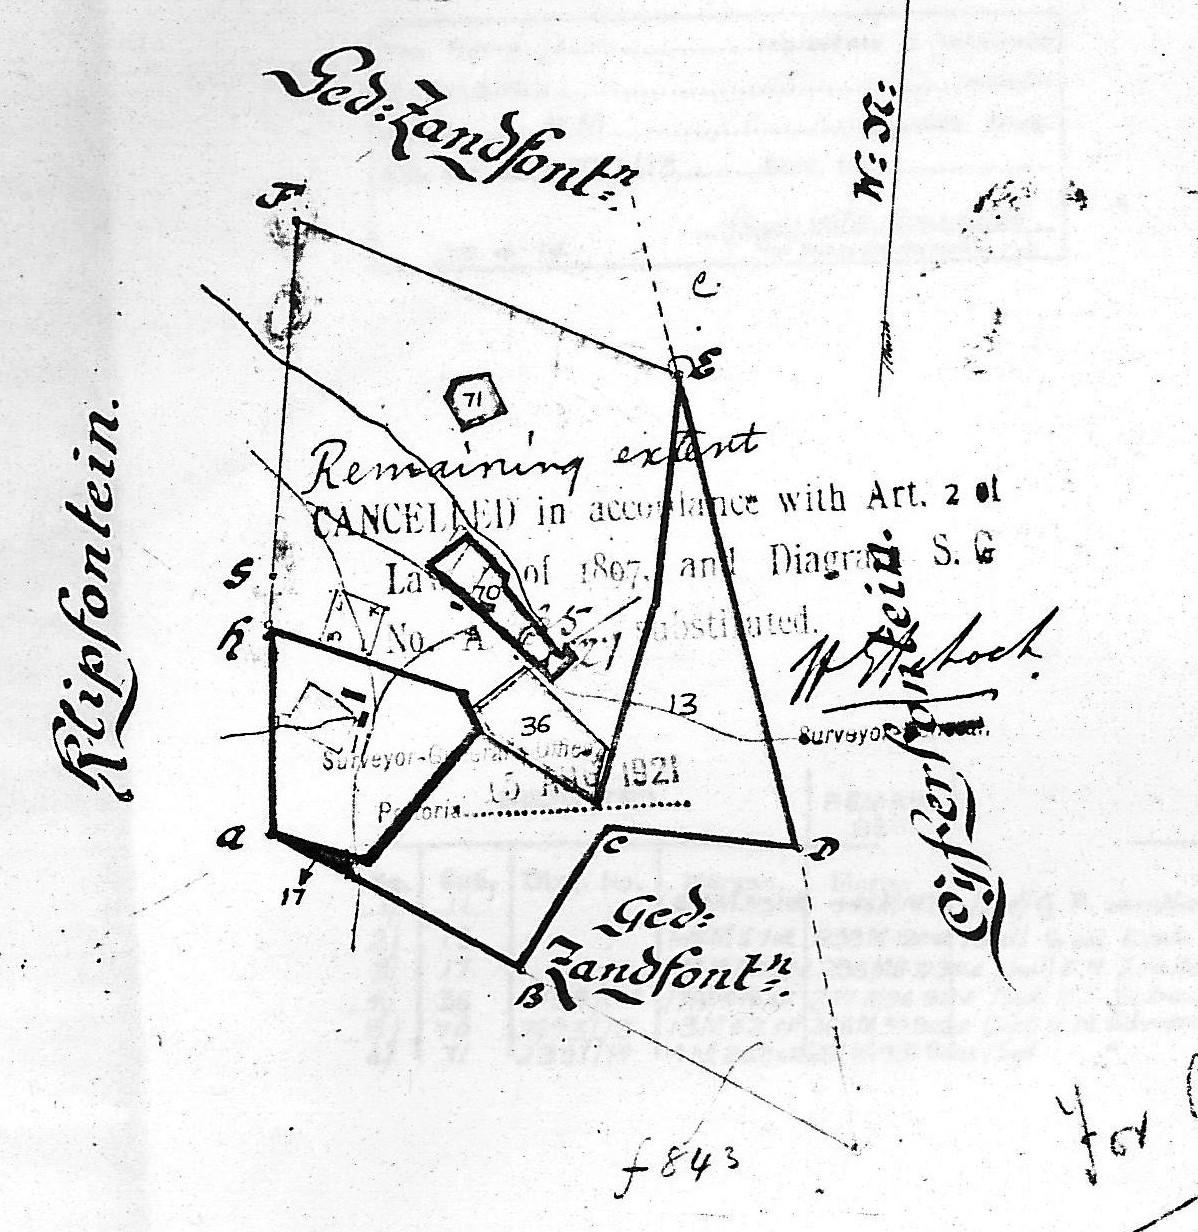 Ged: Zandfontn:
W: N:
F
e
E
71
Klipfontein.
Remaining extent
CANCELLED in accordance with Art. 2 of
Law of 1897. and Diagram S. G
No. A substituted.
S
h
70
36
13
Cijferfontein.
Surveyor-General.
Surveyor-General's Office
15 AUG 1921
Pretoria
a
17
C
D
B
Ged:
Zandfontn:
f 843